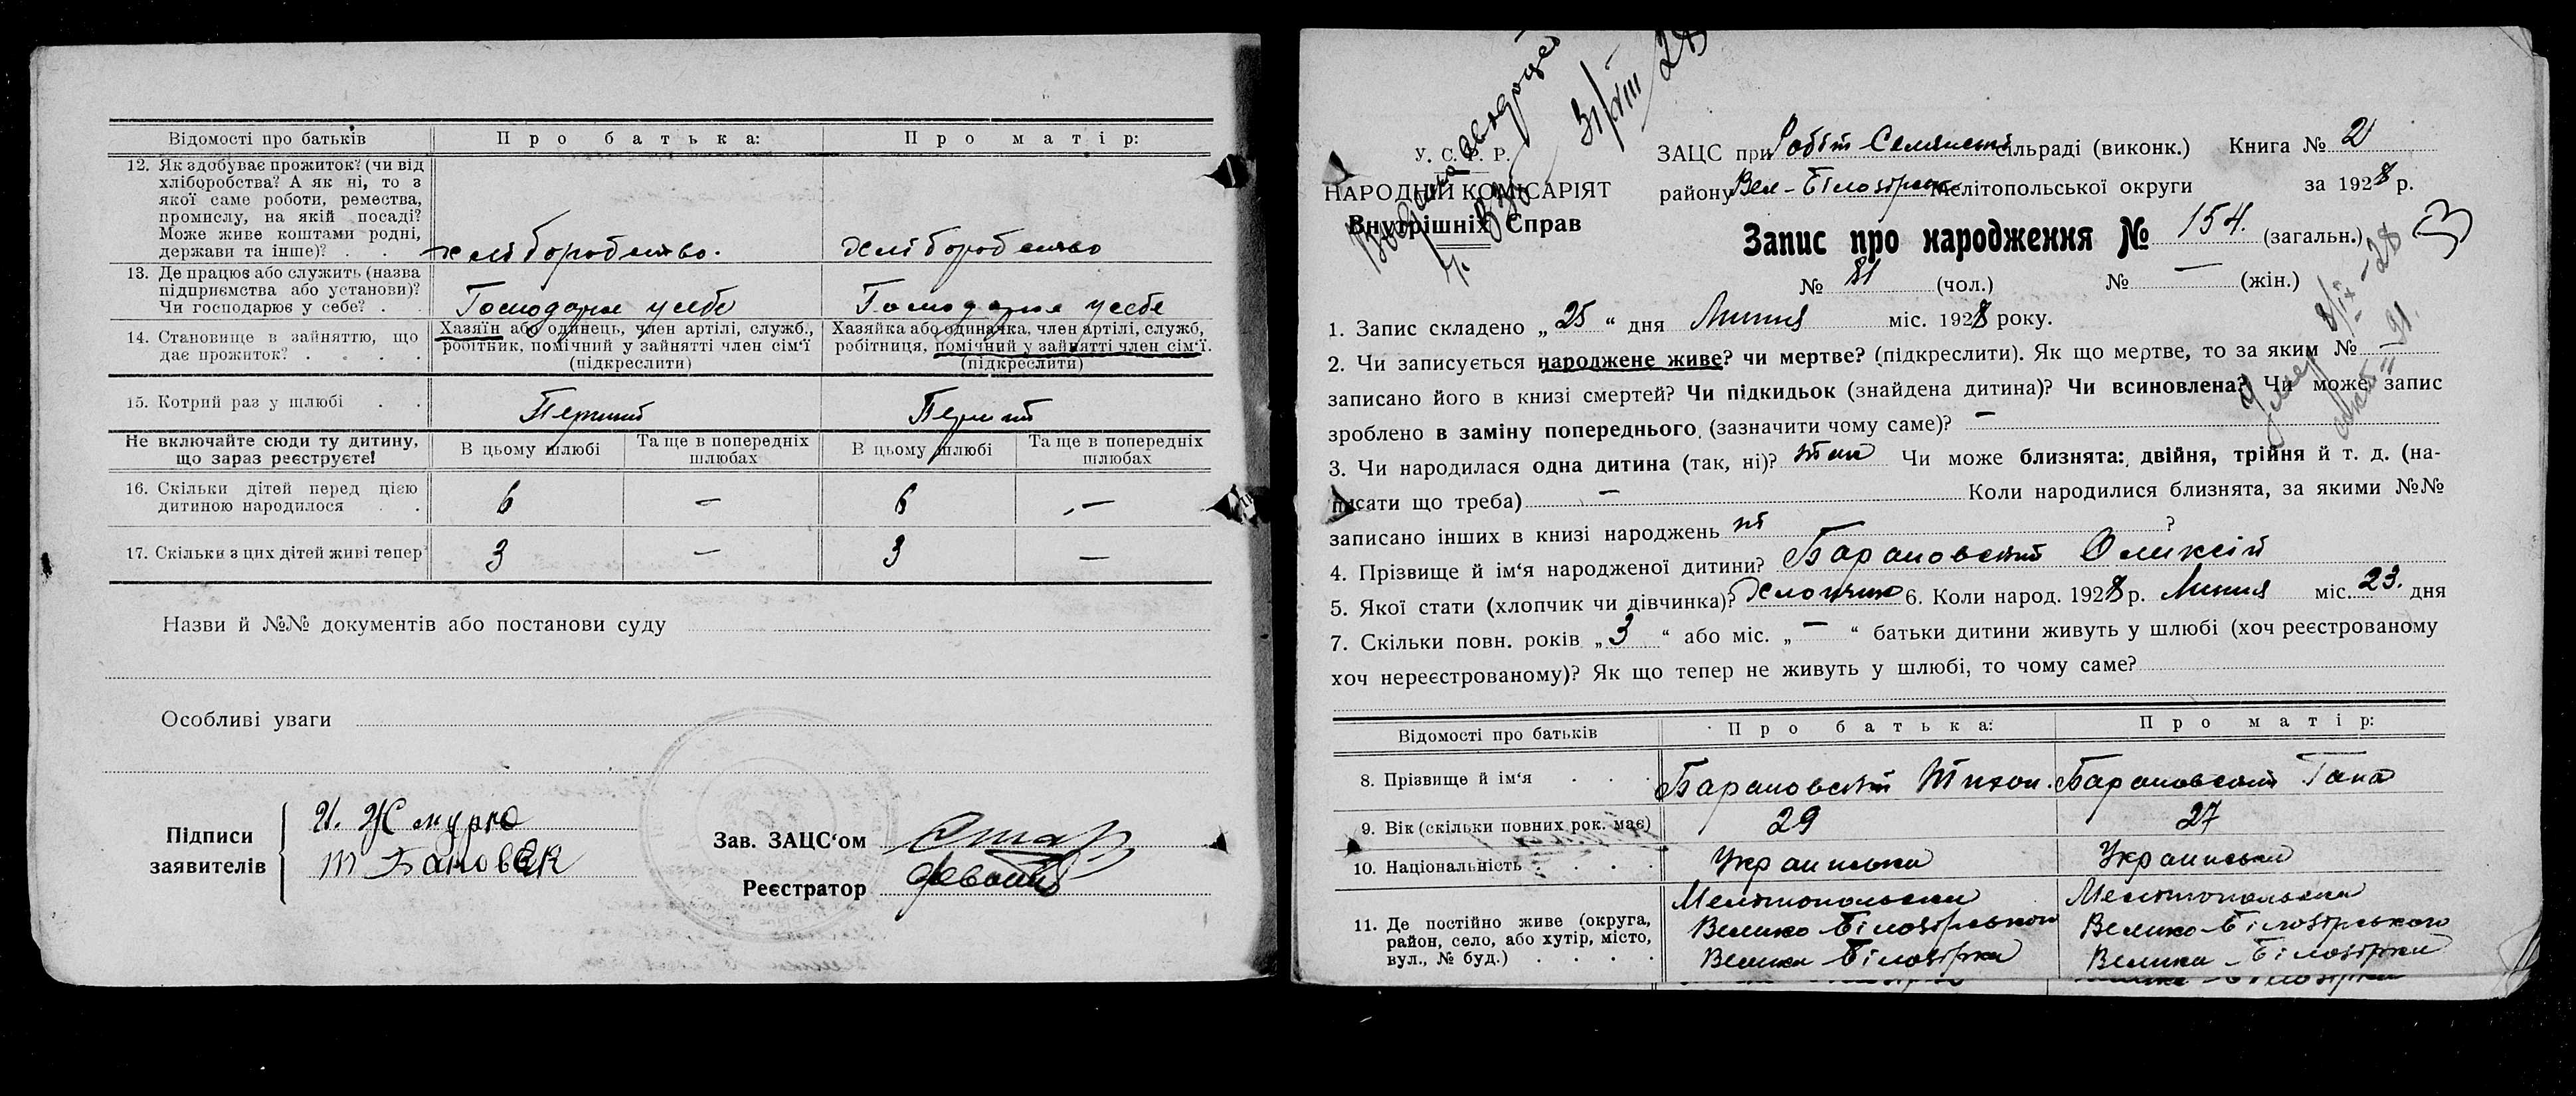 Відомості про батьків
Про батька:
Про матір:
12. Як здобуває прожиток? (чи від
хліборобства? А як ні, то з
якої саме роботи, ремества,
промислу, на якій посаді?
Може живе коштами родні,
держави та інше)? . .
хліборобство.
хліборобство
13. Де працює або служить (назва
підприємства або установи)?
Чи господарює у себе? . .
Господарює у себе
Господарює у себе
14. Становище в зайняттю, що
дає прожиток? . . . .
Хазяїн або одинець, член артілі, служб.,
робітник, помічний у зайнятті член сім'ї
(підкреслити)
Хазяйка або одиначка, член артілі, служб,
робітниця, помічний у зайнятті член сім'ї.
(підкреслити)
15. Котрий раз у шлюбі . .
Перший
Перший
Не включайте сюди ту дитину,
що зараз реєструєте!
В цьому шлюбі
Та ще в попередніх
шлюбах
В цьому шлюбі
Та ще в попередніх
шлюбах
16. Скільки дітей перед цією
дитиною народилося . .
6 — 6 —
17. Скільки з цих дітей живі тепер
3 — 3 —
Назви й №№ документів або постанови суду
Особливі уваги
Підписи
заявителів
И. Жмурко
Зав. ЗАЦС'ом
Реєстратор
31/VIII 28
У. С. Р. Р.
НАРОДНІЙ КОМІСАРІЯТ
Внутрішніх Справ
ЗАЦС при Робіт Селянській сільраді (виконк.) Книга № 2
району Вел-Білозірськ Мелітопольської округи за 1928 р.
Запис про народження № 154. (загальн.)
№ 81 (чол.) № — (жін.)
1. Запис складено „ 25 “ дня Липня міс. 1928 року.
2. Чи записується народжене живе? чи мертве? (підкреслити). Як що мертве, то за яким №
записано його в книзі смертей? Чи підкидьок (знайдена дитина)? Чи всиновлена? Чи може запис
зроблено в заміну попереднього, (зазначити чому саме)? —
3. Чи народилася одна дитина (так, ні)? так Чи може близнята: двійня, трійня й т. д. (на-
писати що треба) — Коли народилися близнята, за якими №№
записано інших в книзі народжень ні ?
4. Прізвище й ім'я народженої дитини? Барановский Олексій
5. Якої стати (хлопчик чи дівчинка)? Хлопчик 6. Коли народ. 1928 р. Липня міс. 23. дня
7. Скільки повн. років „ 3 “ або міс. „ — “ батьки дитини живуть у шлюбі (хоч реєстрованому
хоч нереєстрованому)? Як що тепер не живуть у шлюбі, то чому саме?
Відомості про батьків
Про батька:
Про матір:
8. Прізвище й ім'я . . .
Барановский Тихон.
Барановска Гана
9. Вік (скільки повних рок. має)
29
27
10. Національність . . . .
Украинська
Украинська
11. Де постійно живе (округа,
район, село, або хутір, місто,
вул., № буд.) . . . .
Мелітопольська
Велико Білозірського
Велика Білозірка
Мелітопольська
Велико-Білозірського
Велика-Білозірка